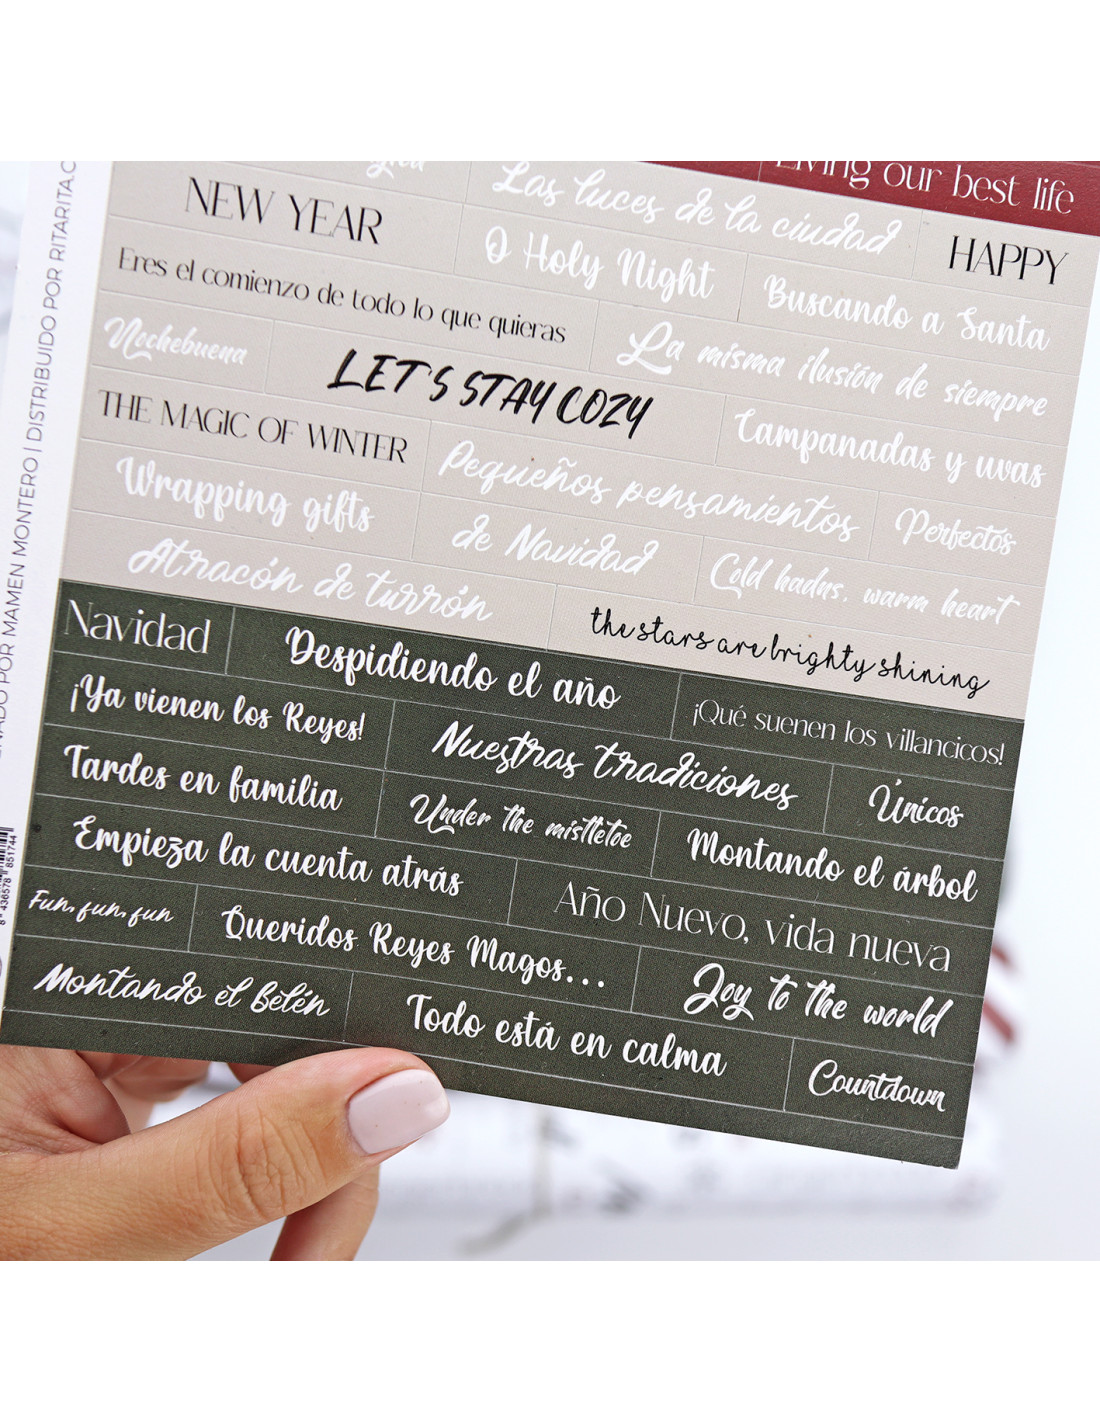 Living our best life
Las luces de la ciudad
HAPPY
NEW YEAR
O Holy Night
Buscando a Santa
Eres el comienzo de todo lo que quieras
La misma ilusión de siempre
Nochebuena
LET'S STAY COZY
Campanadas y uvas
THE MAGIC OF WINTER
Pequeños pensamientos
Perfectos
Wrapping gifts
de Navidad
Cold hadns, warm heart
Atracón de turrón
the stars are brighty shining
Navidad
Despidiendo el año
¡Qué suenen los villancicos!
¡Ya vienen los Reyes!
Nuestras tradiciones
Únicos
Tardes en familia
Under the misttetoe
Montando el árbol
Empieza la cuenta atrás
Año Nuevo, vida nueva
Fun, fun, fun
Queridos Reyes Magos...
Joy to the world
Montando el Belén
Todo está en calma
Countdown
POR MAMEN MONTERO | DISTRIBUIDO POR
8 436578 851744